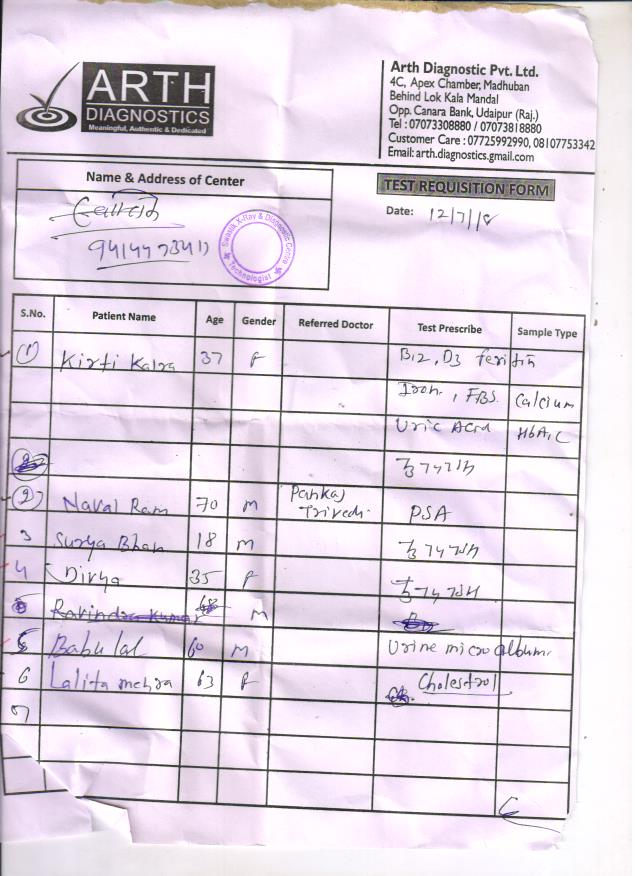 ARTH
DIAGNOSTICS
Meaningful, Authentic & Dedicated
Arth Diagnostic Pvt. Ltd.
4C, Apex Chamber, Madhuban
Behind Lok Kala Mandal
Opp. Canara Bank, Udaipur (Raj.)
Tel : 07073308880 / 07073818880
Customer Care : 07725992990, 08107753342
Email: arth.diagnostics.gmail.com
Name & Address of Center
TEST REQUISITION FORM
Date: 12/7/18
Swastik X-Ray & Diagnostic Centre
Technologist
S.No. Patient Name Age Gender Referred Doctor Test Prescribe Sample Type
1 Kirti Kalra 37 F B12, D3 feritin
Iron, FBS. Calcium
Uric Acid HbA1C
2 Naval Ram 70 M Pankaj Trivedi PSA
3 Surya Bhan 18 M
4 Divya 35 F
Ravindra Kumar M
5 Babu lal 60 M Urine micro album.
6 Lalita mehra 63 F Cholestrol